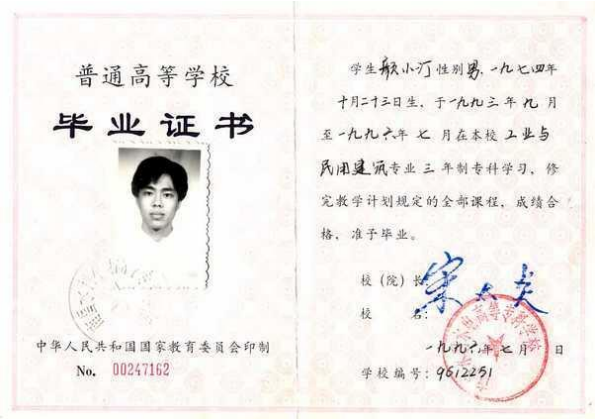 普通高等学校
毕业证书
中华人民共和国国家教育委员会印制
No. 00247162
学生 颜小汀 性别 男, 一九七四年
十月二十三日生, 于一九九三年 九 月
至一九九六年 七 月在本校 工业与
民用建筑 专业 三 年制专科学习, 修
完教学计划规定的全部课程, 成绩合
格, 准予毕业。
校(院)长
校 名:
一九九六年 七 月 日
学校编号: 9612251